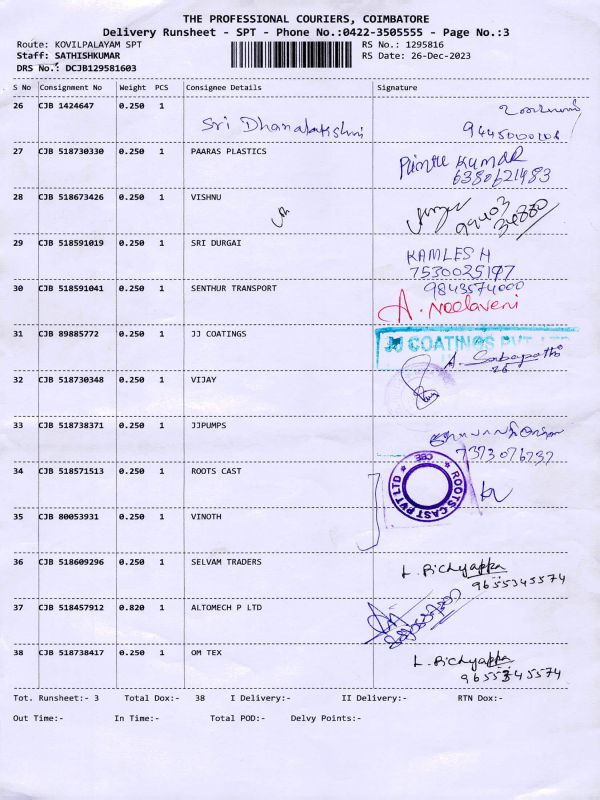 THE PROFESSIONAL COURIERS, COIMBATORE
Delivery Runsheet - SPT - Phone No.:0422-3505555 - Page No.:3
Route: KOVILPALAYAM SPT RS No.: 1295816
Staff: SATHISHKUMAR RS Date: 26-Dec-2023
DRS No.: DCJB129581603
S No Consignment No Weight PCS Consignee Details Signature
26 CJB 1424647 0.250 1
Sri Dhanalakshmi
27 CJB 518730330 0.250 1 PAARAS PLASTICS
Kumar
6380621483
28 CJB 518673426 0.250 1 VISHNU
99403
34880
29 CJB 518591019 0.250 1 SRI DURGAI
KAMLESH
7530025197
30 CJB 518591041 0.250 1 SENTHUR TRANSPORT
9843574000
A. Neelaveni
31 CJB 89885772 0.250 1 JJ COATINGS
JJ COATINGS PVT LTD
A. Sabapathi
32 CJB 518730348 0.250 1 VIJAY
33 CJB 518738371 0.250 1 JJPUMPS
7373076737
34 CJB 518571513 0.250 1 ROOTS CAST
ROOTS CAST PVT LTD CBE
35 CJB 80053931 0.250 1 VINOTH
36 CJB 518609296 0.250 1 SELVAM TRADERS
L. Pichyappa
9655345574
37 CJB 518457912 0.820 1 ALTOMECH P LTD
38 CJB 518738417 0.250 1 OM TEX
L. Pichyappa
9655345574
Tot. Runsheet:- 3 Total Dox:- 38 I Delivery:- II Delivery:- RTN Dox:-
Out Time:- In Time:- Total POD:- Delvy Points:-